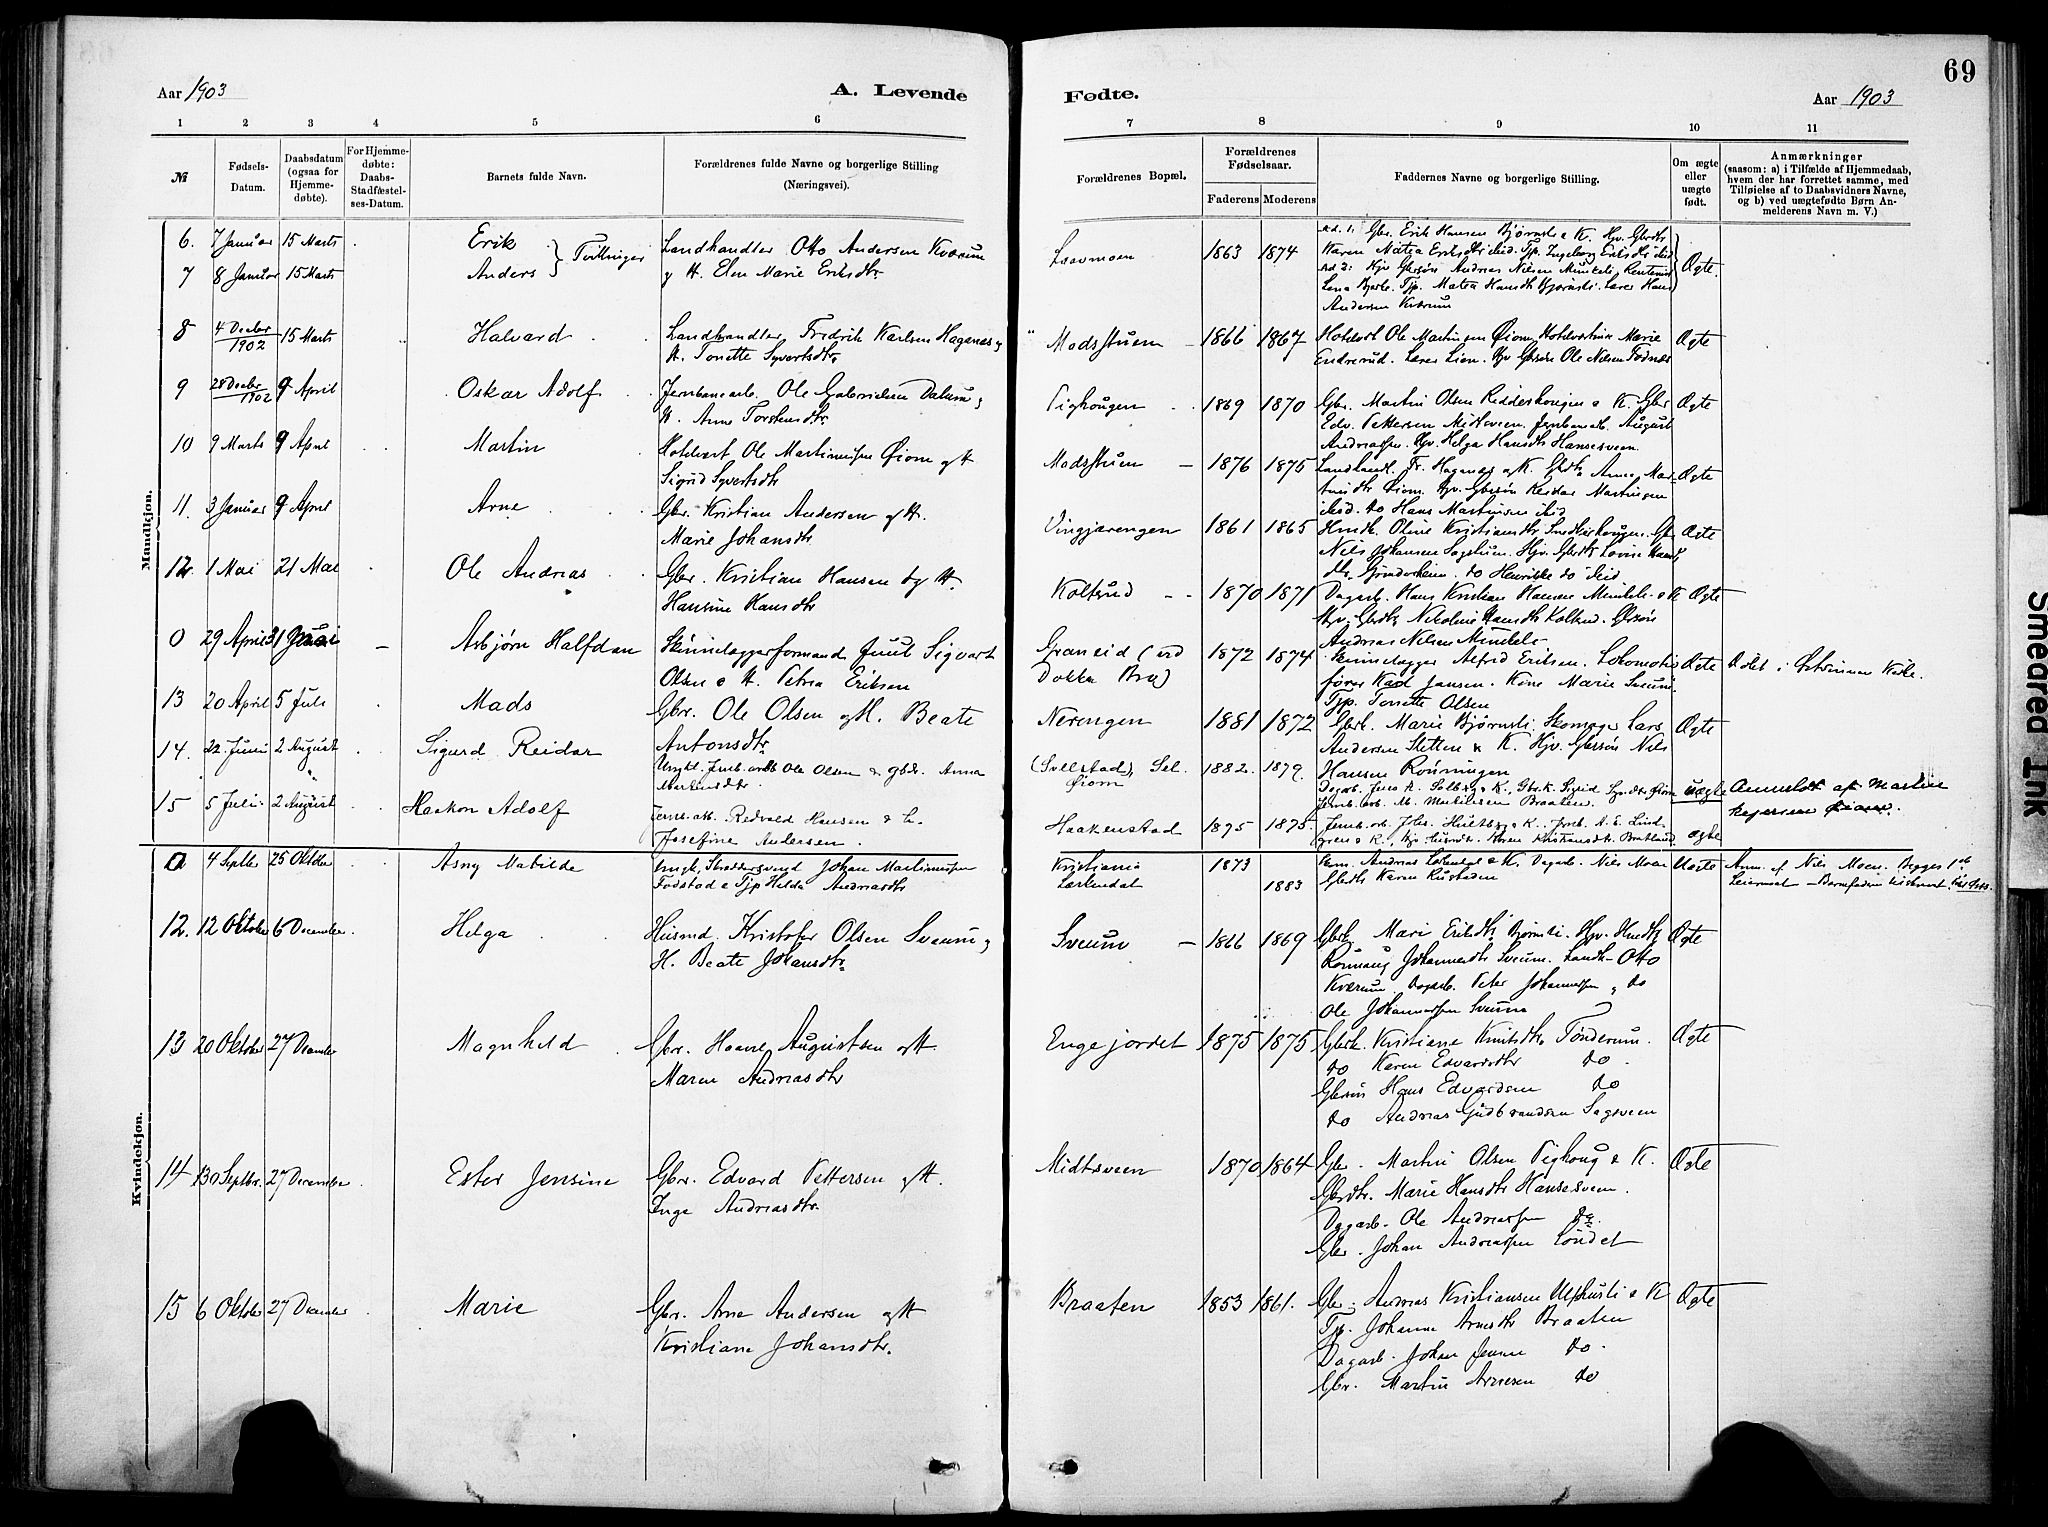 69
Aar 1903
A. Levende
Fødte.
Aar 1903
1 2 3 4 5 6 7 8 9 10 11
№
Fødsels-Datum.
Daabsdatum (ogsaa for Hjemme-døbte).
For Hjemme-døbte: Daabs-Stadfæstel-ses-Datum.
Barnets fulde Navn.
Forældrenes fulde Navne og borgerlige Stilling (Næringsvei).
Forældrenes Bopæl.
Forældrenes Fødselsaar.
Faderens Moderens
Faddernes Navne og borgerlige Stilling.
Om ægte eller uægte født.
Anmærkninger
(saasom: a) i Tilfælde af Hjemmedaab, hvem der har forrettet samme, med Tilføielse af to Daabsvidners Navne, og b) ved uægtefødte Børn An-melderens Navn m. V.)
Mandkjøn.
6. 7 Januar 15 Marts Erik Tvillinger Landhandler Otto Andersen Kværum
7 8 Januar 15 Marts Anders & H. Elen Marie Eriksdtr.
1863 1874
Ad. 1: Gbr. Erik Hansen Bjørnsli & K. Hjv. Gbrdtr.
Karen Matea Eriksdtr ibid. Tjp. Ingeborg Eriksdtr ibid
Ad 2: Hjv Gbrsøn Andreas Nilsen Minkeli
Lena Tjp. Matea Hansdtr Bjørnsli. Lærer Hans
Andersen Kværum
Ægte.
8 4 Decbr 1902 15 Marts Halvard Landhandler Fredrik Karlsen Hagenæs &
H. Tonette Syvertsdtr.
Madsstuen 1866 1867
Hotelvert Ole Martinsen Øiom, Hotelvertinde Marie
Endrerud. Lærer Lien. Hjv Gbrsøn Ole Nilsen Fodnæs
Ægte
9 28 Decbr 1902 9 April Oskar Adolf Jernbanearb. Ole Gabrielsen Dalum &
H. Anne Torstensdtr.
Pighougen 1869 1870
Gbr. Martin Olsen Ridderhougen & K. Gbr
Edv. Pettersen Midtsveen. Jernbanearb. August
Andreassen. Hjv. Helga Hansdtr Hansesveen.
Ægte
10 9 Marts 9 April Martin Hotelvert Ole Martinussen Øiom og H
Sigrid Syvertsdtr
Madsstuen 1876 1875
Landhandl. Fr. Hagenæs & K. Gbrdtr. Anne Mar-
tinsdtr Øiom. Hjv. Gbrsøn Reidar Martinsen
ibid. do Hans Martinsen ibid
Ægte
11. 3 Januar 9 April Arne Gbr. Kristian Andersen og H.
Marie Johansdtr
Vingjærengen 1861 1865
Husdtr. Oline Kristiansdtr Smedhaugen. Gbr
Nils Johansen Sagstuen. Hjv. Gbrdtr. Lovise Hans
dtr. do Henrikke do ibid
Ægte
12. 1 Mai 21 Mai Ole Andreas Gbr. Kristian Hansen og H.
Hansine Hansdtr
Koltrud 1870 1871
Dagarb. Hans Kristian Hansen Minkeli & K
Hjv. Gbrdtr. Nikoline Hansdtr Koltrud. Gbrsøn
Andreas Nilsen Minkeli
Ægte
0 29 April 31 Mai Asbjørn Halfdan Skinnelæggerformand Juul Sigvart
Olsen & H. Petra Eriksen
Granlid (ved
Dokka Bro)
1872 1874
Skinnelægger Alfred Eriksen. Lokomotiv
fører Karl Jansen. Kone Marie Sveum.
Tjp. Tonette Olsen
Ægte Døbt i Østsinnen Kirke.
13 20 April 5 Juli Mads Gbr. Ole Olsen og H. Beate
Antonsdtr.
Nerengen 1881 1872
Gbrk. Marie Bjørnsli. Skomager Lars
Andersen Sletten & K. Hjv. Gbrsøn Nils
Hansen Rønningen
Ægte
14. 22 Juni 2 August Sigurd Reidar Ungkl. Jernb.arb Ole Olsen & gbdr. Anna
Martinsdtr.
Øiom 1882. 1879.
Dagarb. Jens K. Solberg & K. Gbr.k. Sigrid Syv.dtr Øiom
Braaten.
uægte Anmeldt af Martin
Øiom.
15 5 Juli 2 August Haakon Adolf Jernb.arb. Redvald Hansen & h.
Josefine Andersen
Haakenstad 1875 1875
Ægte
Kvindekjøn.
0 4 Septbr 25 Oktober Asny Matilde Ungk. Skreddersvend Johan Martinussen
Fodstad & Tjp Helda Andreasdtr
Kristiania
1873
1883
& K. Dagarb. Nils Moen
Gbrdtr Karen Rustaden
Uægte Anm. af Nils Moen. Begges 1ste
Leiermaal
12. 12 Oktober 6 December Helga Husmd. Kristofer Olsen Sveum &
H. Beate Johansdtr.
Sveum 1866 1869
Gbrk. Mari Eriksdtr. Bjørnsli. Hjv. Husdtr.
Rønnaug Johannesdtr Sveum. Landh. Otto
Kværum. Dagarb. Peter Johannessen & do
Ole Johannessen Sveum
Ægte
13 20 Oktober 27 December Magnhild Gbr. Hans Augustsen og H.
Maren Andreasdtr
Engejordet 1875 1875
Gbrk. Kristiane Knutsdtr. Tønderum.
do Karen Edvardsdtr do
Gbrsøn Hans Edvardsen do
do Andreas Gudbrandsen Sagsveen
Ægte
14 30 Septbr. 27 December Ester Jensine Gbr. Edvard Pettersen og H.
Inge Andreasdtr.
Midtsveen 1870 1864
Gbr. Martin Olsen Pighoug & K.
Gbrdtr. Marie Hansdtr Hansesveen.
Dagarb. Ole Andreassen do.
Gbr. Johan Andreassen
Ægte
15 6 Oktober 27 December Marie Gbr. Arne Andersen og H
Kristiane Johansdtr.
Braaten 1853 1861.
Gbr. Andreas Kristiansen & K
Tjp. Johanne Arnesdtr Braaten
Dagarb. Johan Jensen do.
Gbr. Martin Arnesen do
Ægte
Smeared Ink